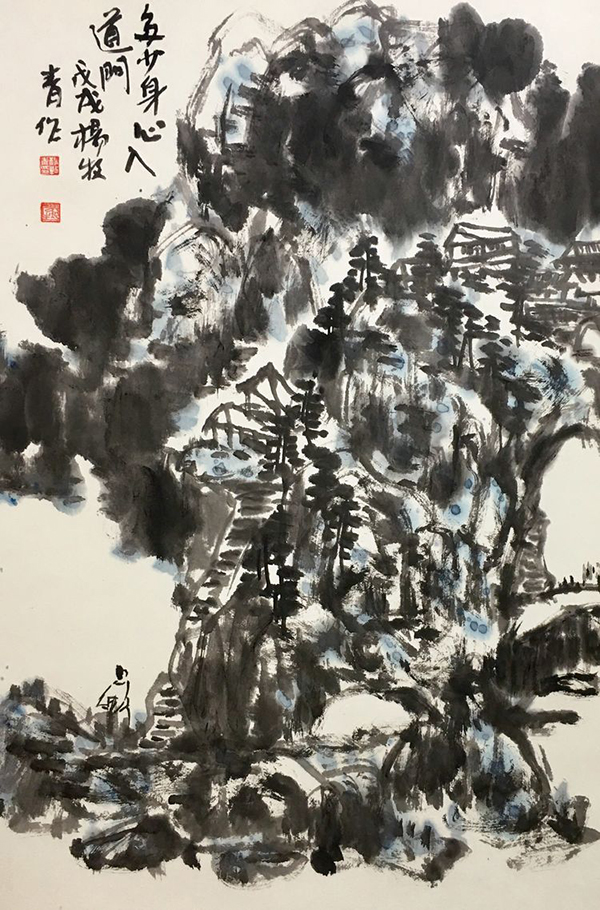 多少身心入
道門
戊戌楊牧
青作